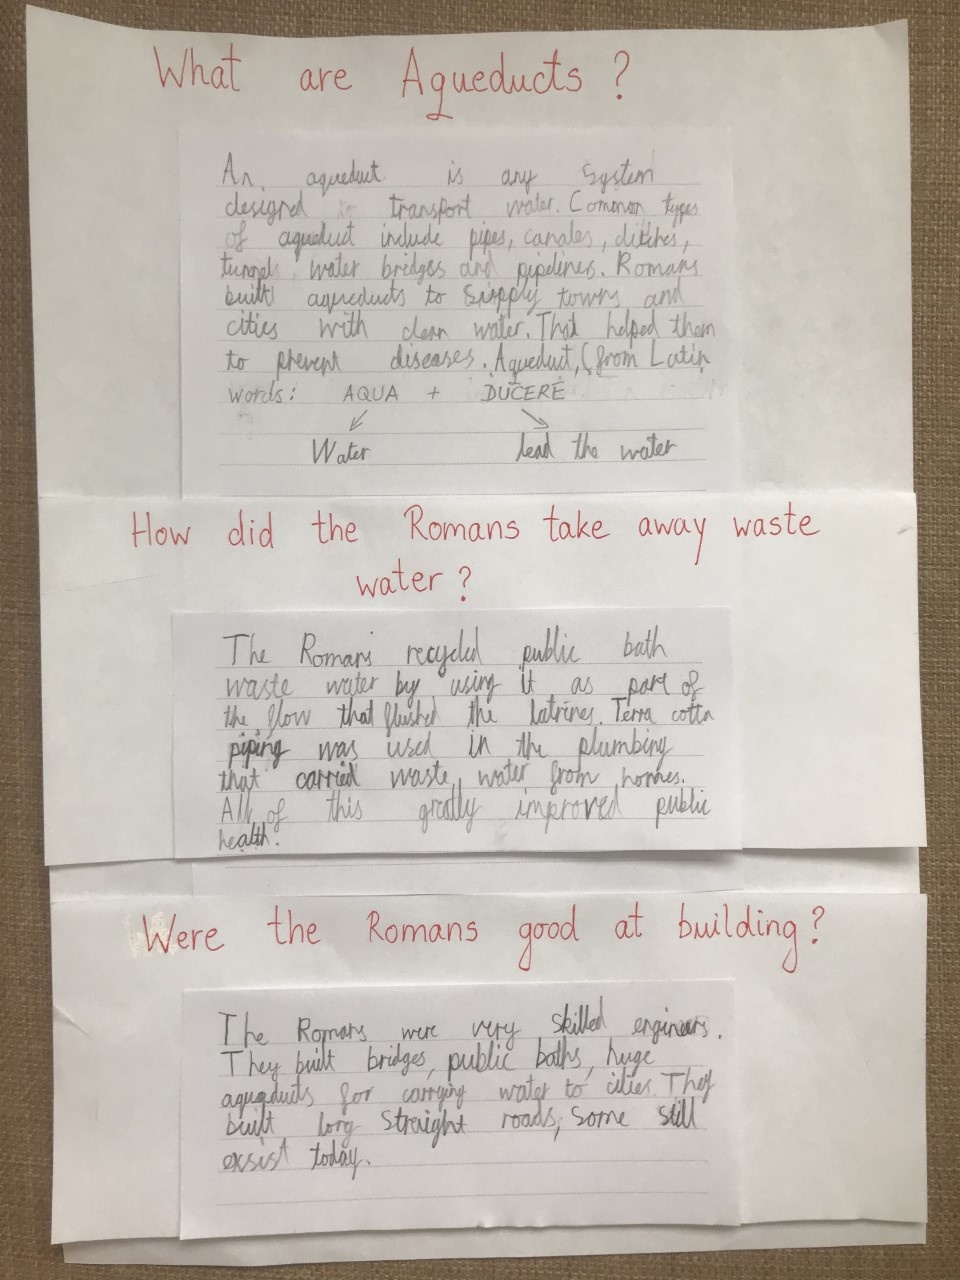 What are Aqueducts ?
An aqueduct is any system
designed to transport water. Common types
of aqueduct include pipes, canales, ditches,
tunnels water bridges and pipelines. Romans
built aqueducts to supply towns and
cities with clean water. That helped them
to prevent diseases. Aqueduct, (from Latin
words: AQUA + DUCERE
Water lead the water
How did the Romans take away waste
water ?
The Romans recycled public bath
waste water by using it as part of
the flow that flushed the latrines. Terra cotta
piping was used in the plumbing
that carried waste water from homes.
All of this greatly improved public
health.
Were the Romans good at building?
The Romans were very skilled engineers.
They built bridges, public baths, huge
aqueducts for carrying water to cities. They
built long straight roads, some still
exsist today.